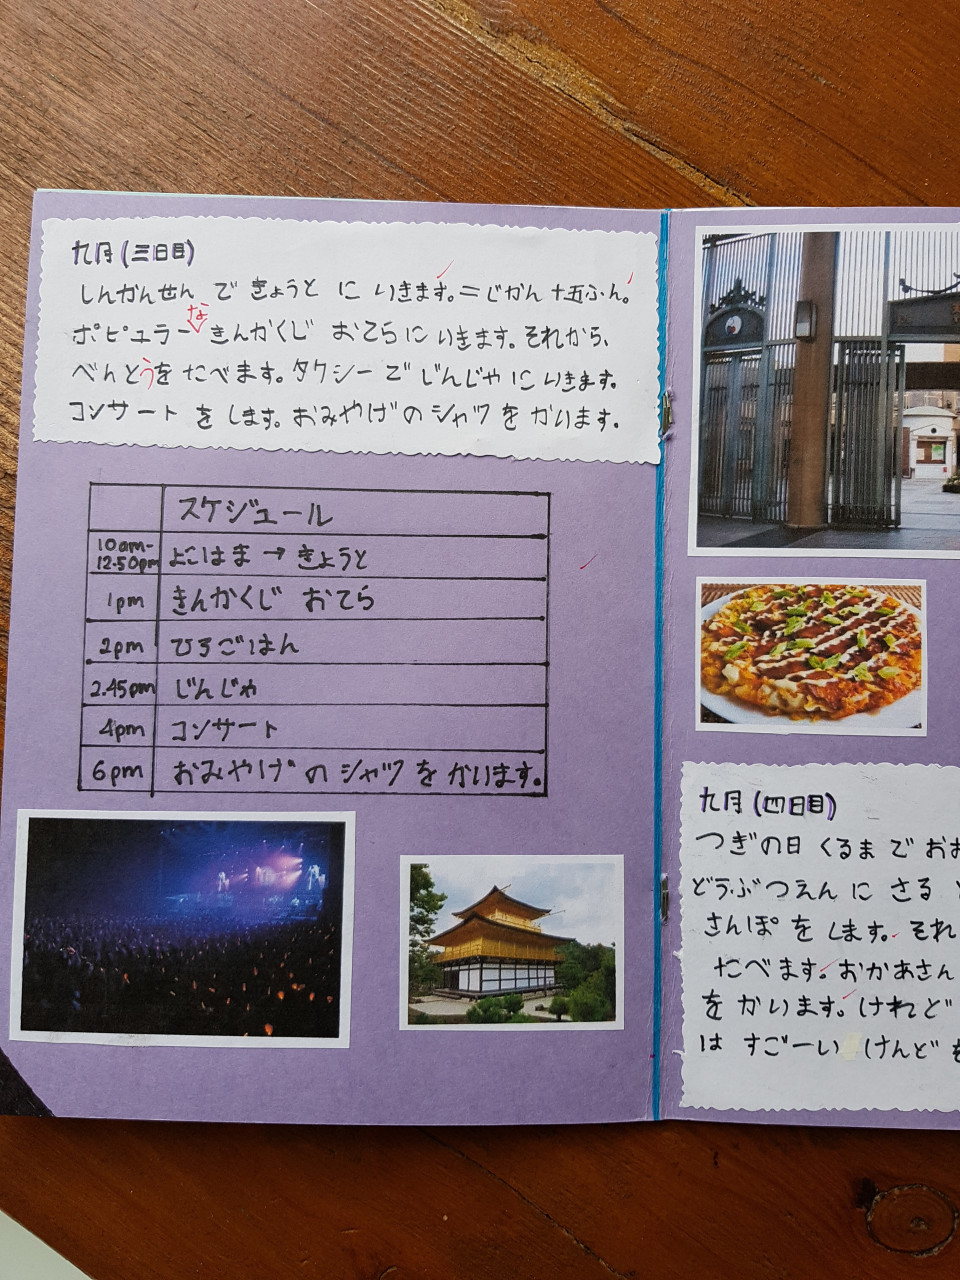 九月(三日目)
しんかんせん で きょうと に いきます。二じかん 十五ふん。
な
ポピュラー きんかくじ おてらに いきます。それから、
べんとうを たべます。タクシーで じんじゃに いきます。
コンサート を します。おみやげの シャツ を かいます。
スケジュール
10am-12.50pm よこはま → きょうと
1pm きんかくじ おてら
2pm ひるごはん
2.45pm じんじゃ
4pm コンサート
6pm おみやげ の シャツ を かいます。
九月(四日目)
つぎの日 くるま で おお
どうぶつえん に さる
さんぽ を します。それ
たべます。おかあさん
を かいます。けれど
は すごーい けんど を